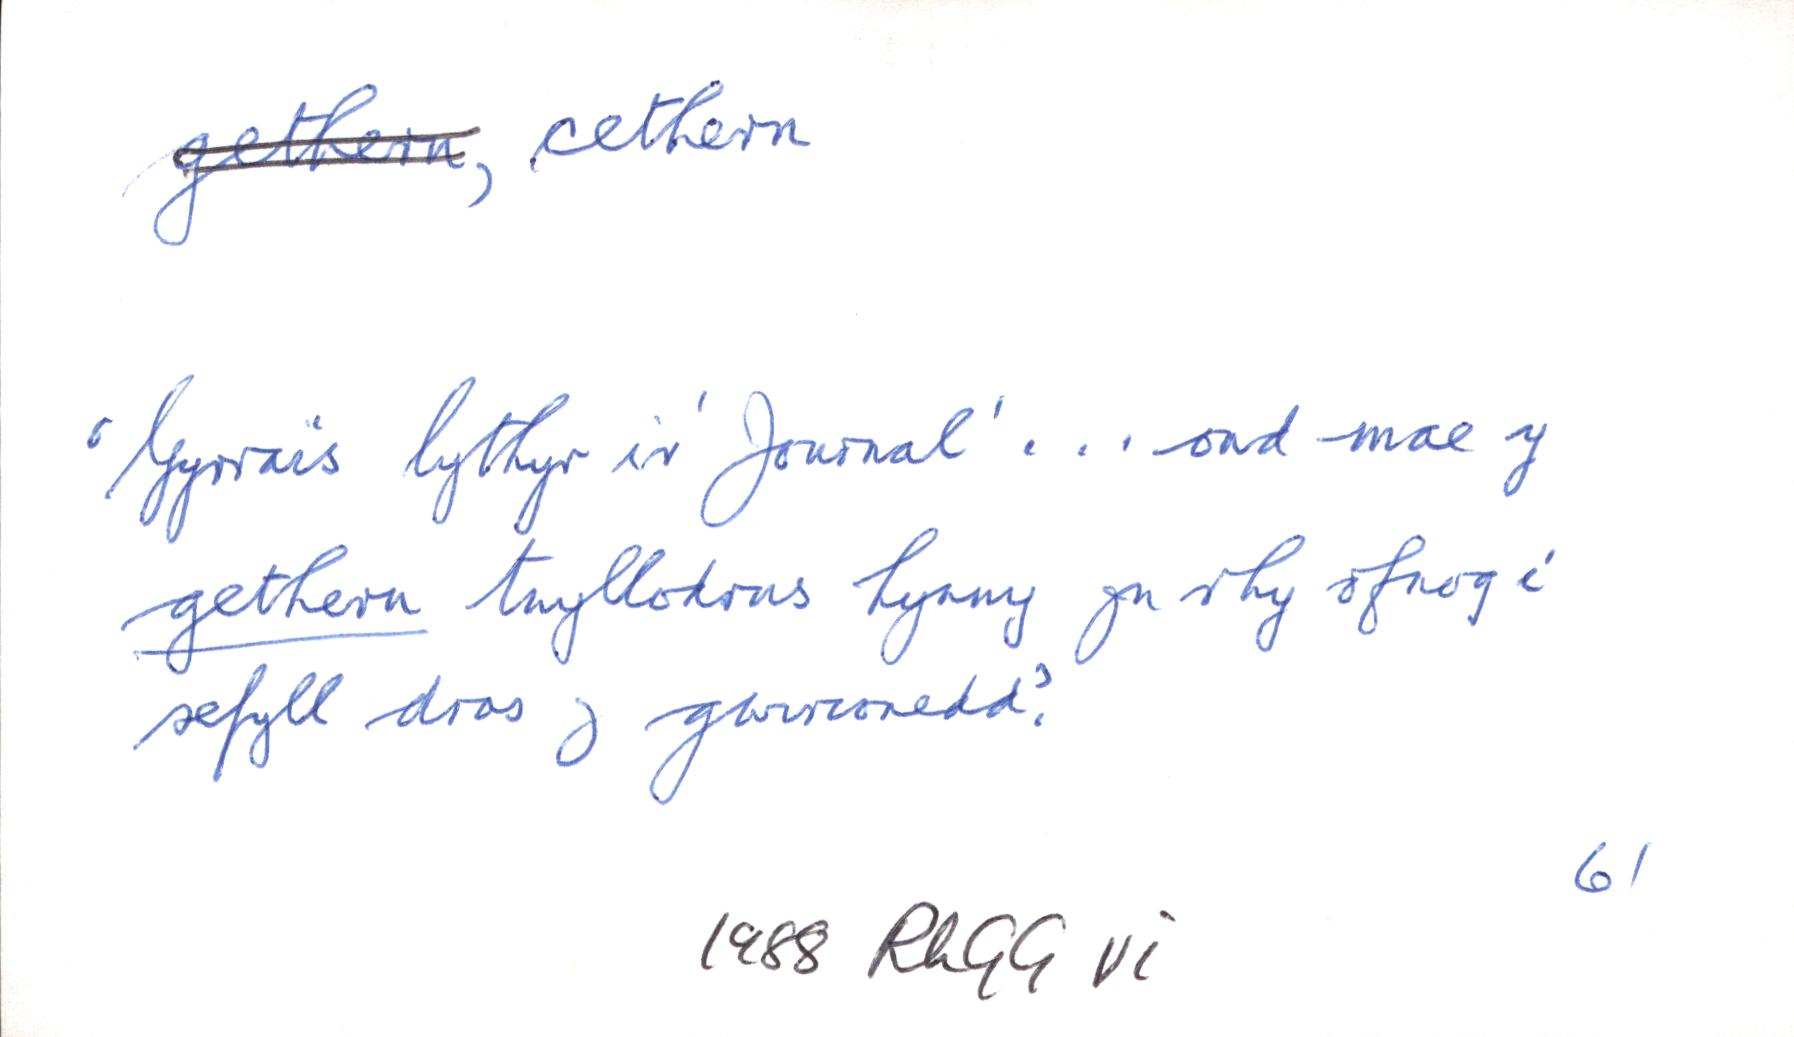 gethern, cethern
'Gyrrais lythyr i'r 'Journal' . . . ond mae y
gethern twyllodrus hynny yn rhy ofnog i
sefyll dros y gwirionedd.'
61
1988 RhGG vi